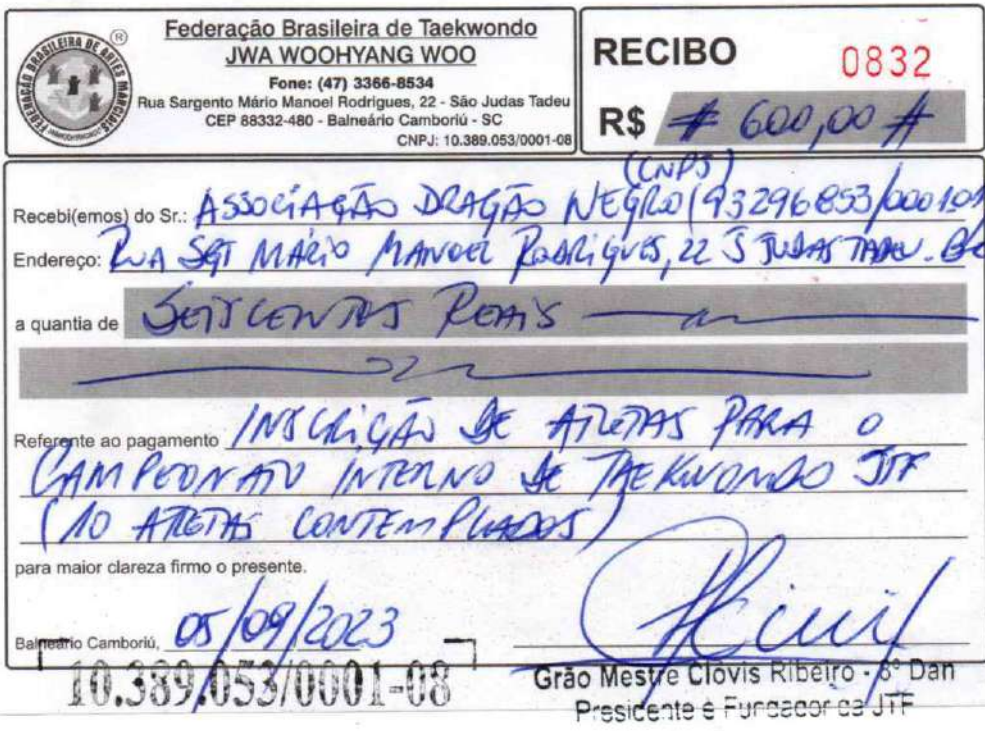 FEDERAÇÃO BRASILEIRA DE ARTES MARCIAIS
®
Federação Brasileira de Taekwondo
JWA WOOHYANG WOO
Fone: (47) 3366-8534
Rua Sargento Mário Manoel Rodrigues, 22 - São Judas Tadeu
CEP 88332-480 - Balneário Camboriú - SC
CNPJ: 10.389.053/0001-08
RECIBO 0832
R$ # 600,00 #
(CNPJ)
Recebi(emos) do Sr.: ASSOCIAÇÃO DRAGÃO NEGRO (93296853/000101
Endereço: RUA SGT MÁRIO MANOEL RODRIGUES, 22 S JUDAS TADEU. BC
a quantia de SEISCENTOS REAIS
Referente ao pagamento INSCRIÇÃO DE ATLETAS PARA O
CAMPEONATO INTERNO DE TAEKWONDO JTF
(10 ATLETAS CONTEMPLADOS)
para maior clareza firmo o presente.
Balneário Camboriú, 05/09/2023
10.389.053/0001-08
Grão Mestre Clóvis Ribeiro - 8° Dan
Presidente e Fundador da JTF